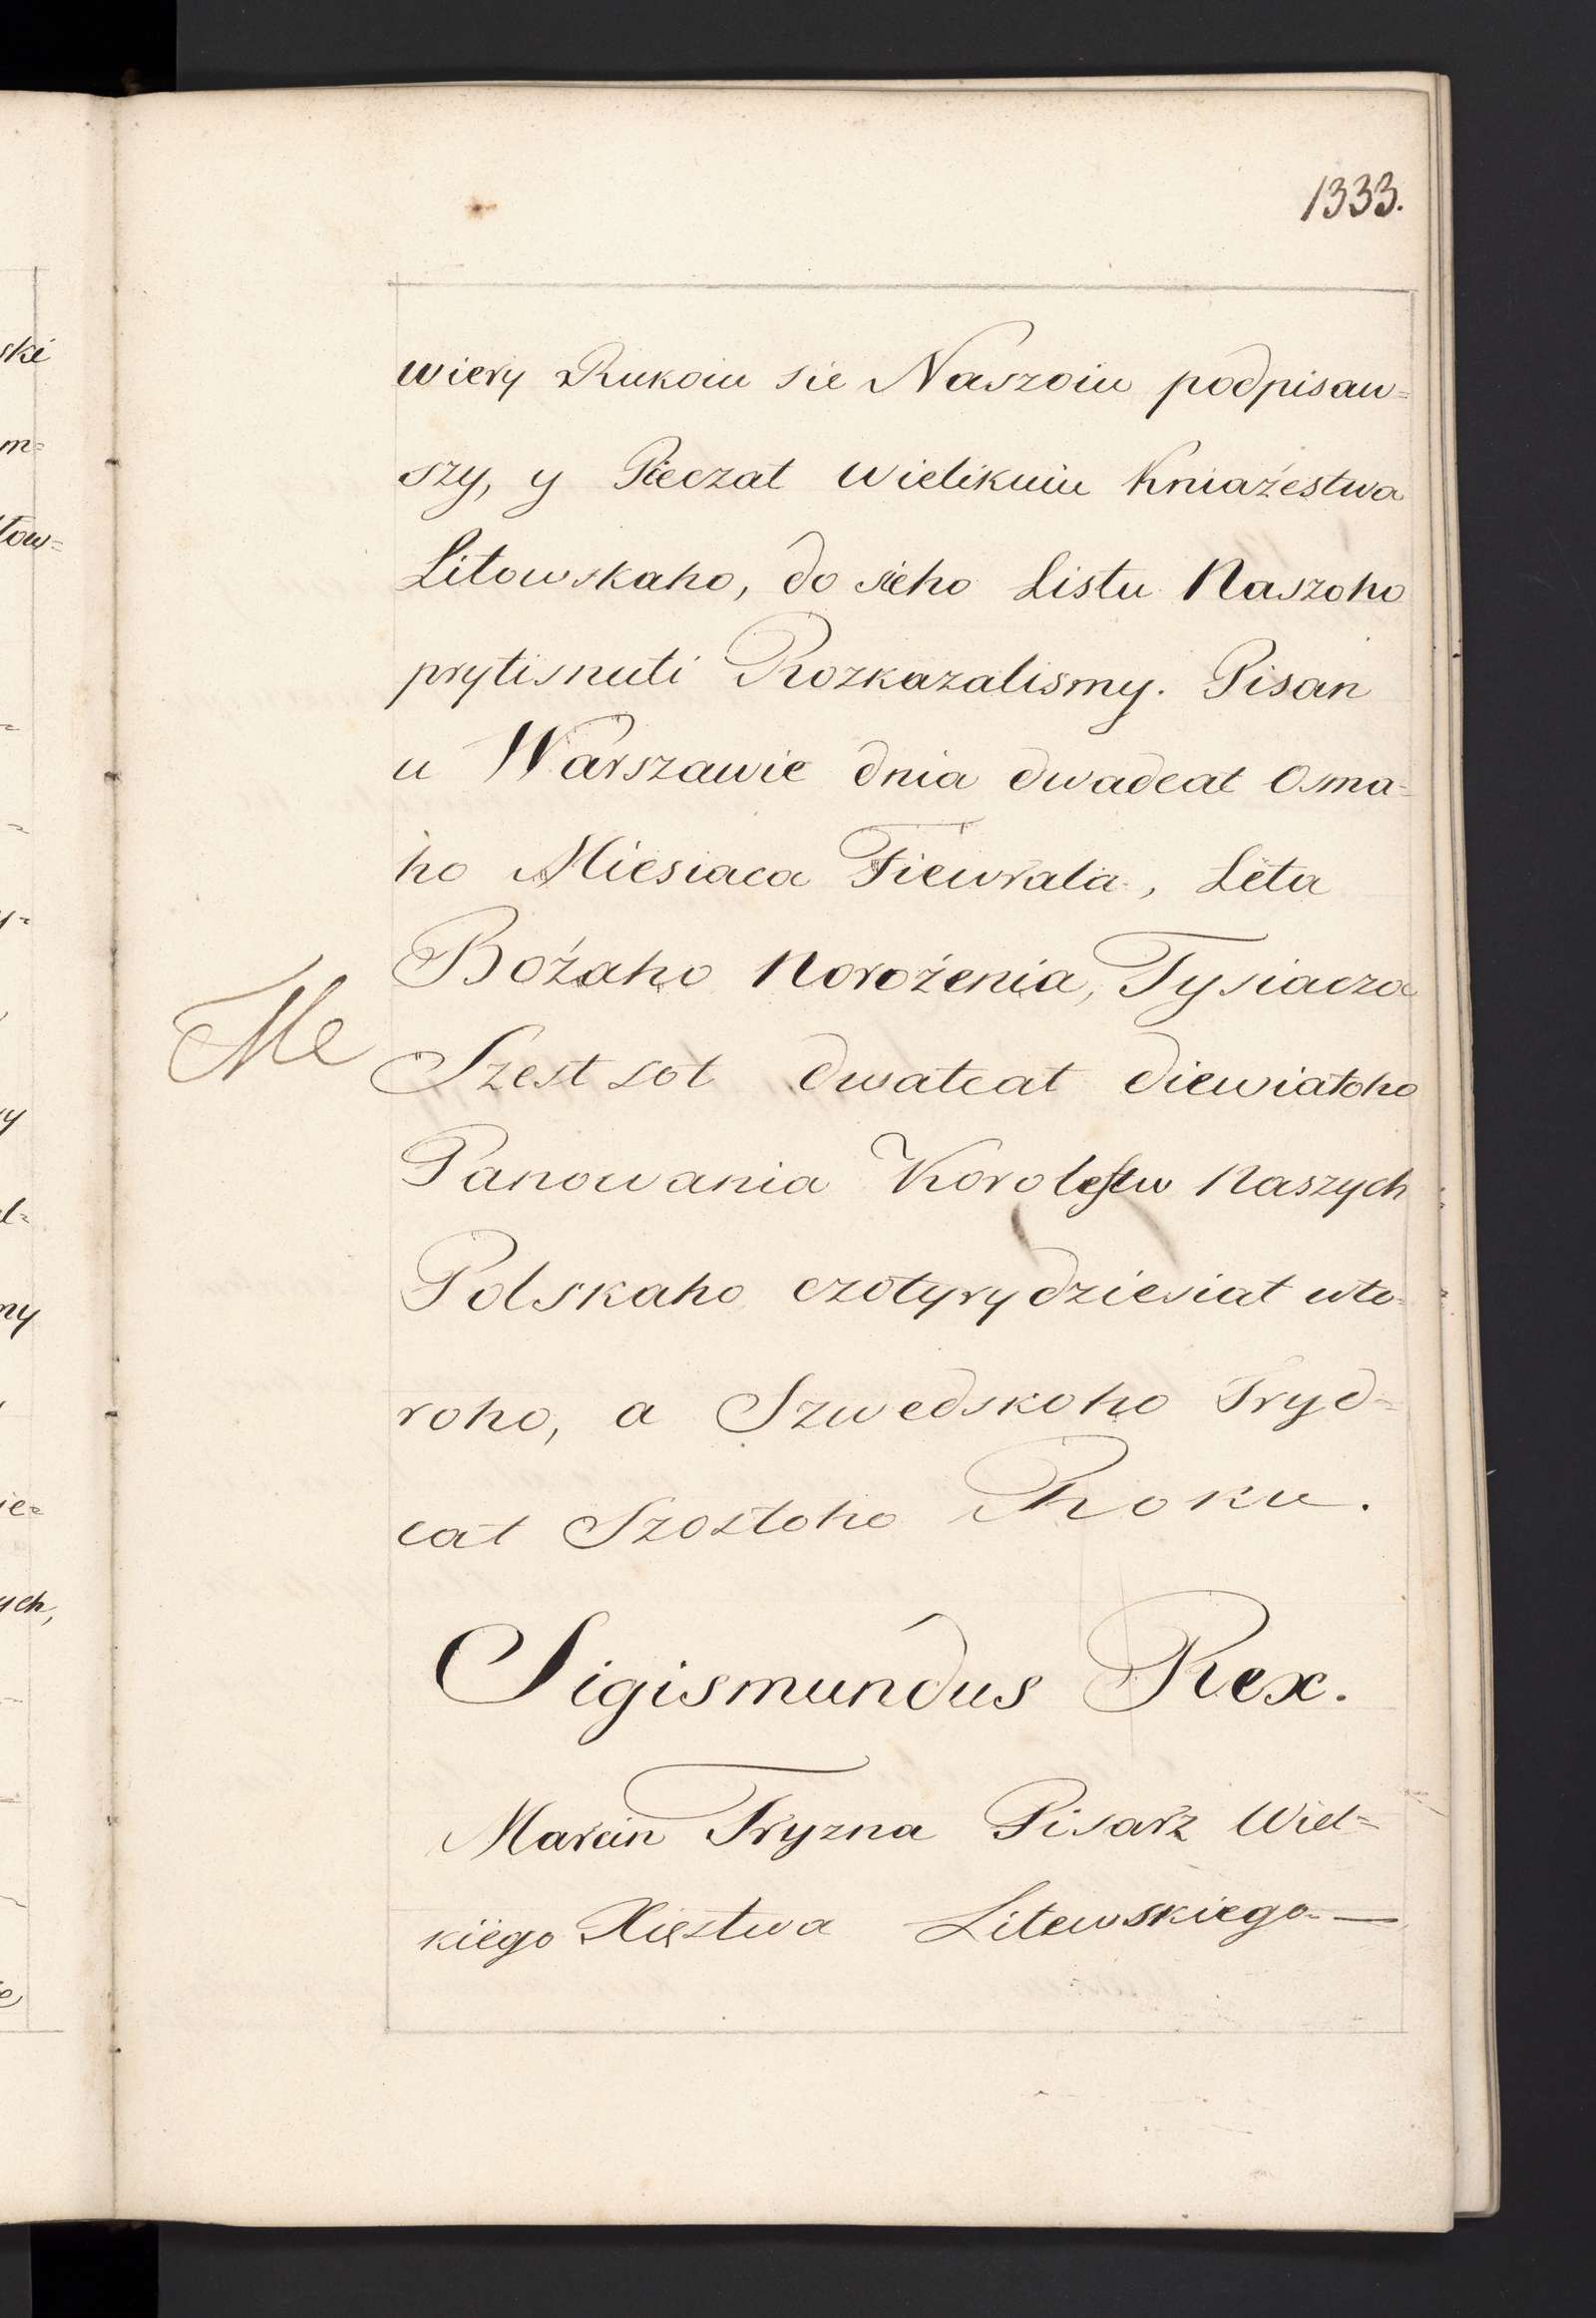 1333.
wiery Rukoiu sie Naszoiu podpisaw=
szy, y Pieczat Wielikuiu Kniażestwa
Litowskaho, do sieho Listu Naszoho
prytisnuti Rozkazalismy. Pisan
u Warszawie dnia dwadcat Osma=
ho Miesiaca Fiewrala, Leta
Bożaho Norożenia, Tysiacza
Szest sot dwatcat diewiatoho
Panowania Korolestw Naszych
Polskaho czotyrydziesiat wto=
roho, a Szwedskoho Tryd=
cat Szostoho Roku.
Sigismundus Rex.
Marcin Tryzna Pisarz Wiel=
kiego Xięztwa Litewskiego.—